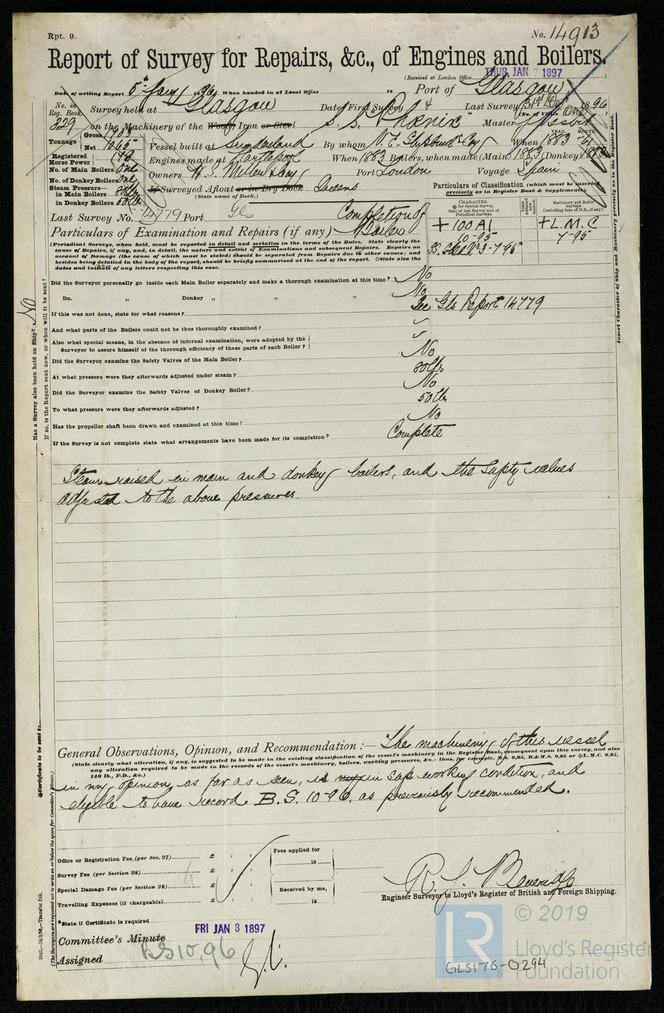 Rpt. 9.
No. 14913
Report of Survey for Repairs, &c., of Engines and Boilers.
(Received at London Office THUR. JAN 7 1897
Date of writing Report 5th Jany 96 When handed in at Local Office 18 Port of Glasgow
No. in Reg. Book. Survey held at Glasgow Date, First Survey 4 Last Survey 1896
329 on the Machinery of the Wood, Iron or Steel S.S. "Phœnix" Master
Tonnage Gross 1703 Net 1065 Vessel built at Sunderland By whom When 1883
Registered Horse Power 148 Engines made at Hartlepool When 1883 Boilers, when made (Main) 1883 (Donkey) 1883
No. of Main Boilers One Owners Port London Voyage Spain
No. of Donkey Boilers One
Steam Pressure in Main Boilers 80 lbs If Surveyed Afloat or in Dry Dock Queens
(State name of Dock.)
in Donkey Boilers 50 lbs
Particulars of Classification (which must be inserted precisely as in Register Book & Supplement).
Last Survey No. 14779 Port Gls
Completion of Boiler
Particulars of Examination and Repairs (if any)
+ 100 A1
10-95
+ L.M.C
7-95
(Periodical Surveys, when held, must be reported in detail and seriatim in the terms of the Rules. State clearly the cause of Repairs, if any, and, in detail, the nature and extent of Examinations and subsequent Repairs. Repairs on account of Damage (the cause of which must be stated) should be separated from Repairs due to other causes; and besides being detailed in the body of the report, should be briefly summarised at the end of the report. State also the dates and initials of any letters respecting this case.
Did the Surveyor personally go inside each Main Boiler separately and make a thorough examination at this time? No
Do. " Donkey " " " " No
If this was not done, state for what reasons? See Gls Report 14779
And what parts of the Boilers could not be thus thoroughly examined? "
Also what special means, in the absence of internal examination, were adopted by the Surveyor to assure himself of the thorough efficiency of these parts of each Boiler? "
Did the Surveyor examine the Safety Valves of the Main Boiler? No
At what pressure were they afterwards adjusted under steam? 80 lbs
Did the Surveyor examine the Safety Valves of Donkey Boiler? No
To what pressure were they afterwards adjusted? 50 lbs
Has the propeller shaft been drawn and examined at this time? No
If the Survey is not complete state what arrangements have been made for its completion? Complete
Steam raised in main and donkey boilers, and the safety valves
adjusted to the above pressures.
General Observations, Opinion, and Recommendation :— The machinery of this vessel
(State clearly what alteration, if any, is suggested to be made in the existing classification of the vessel's machinery in the Register Book, consequent upon this survey, and also any alteration required to be made in the records of the vessel's machinery, boilers, working pressures, &c.; thus, for example, B.S. 9,95, B.&M.S. 9,95 or L.M.C. 9,95, 140 lb., F.D., &c.)
in my opinion, as far as seen, is in safe working condition, and
eligible to have record B.S. 10-96. as previously recommended.
Office or Registration Fee (per Sec. 27) £
Survey Fee (per Section 28) £
Special Damage Fee (per Section 28) £
Travelling Expenses (if chargeable) £
Fees applied for 18
Received by me, 18
R. S. Beveridge
Engineer Surveyor to Lloyd's Register of British and Foreign Shipping.
*State if Certificate is required
FRI JAN 8 1897
Committee's Minute
Assigned BS 10 96
Has a Survey also been held on Ship? No
If so, is the Report sent now, or when will it be sent?
Insert Character of Ship and Machinery precisely as in the Register Book.
Certificate to be sent to
© 2019
LR
Lloyd's Register
Foundation
GLS176-0294